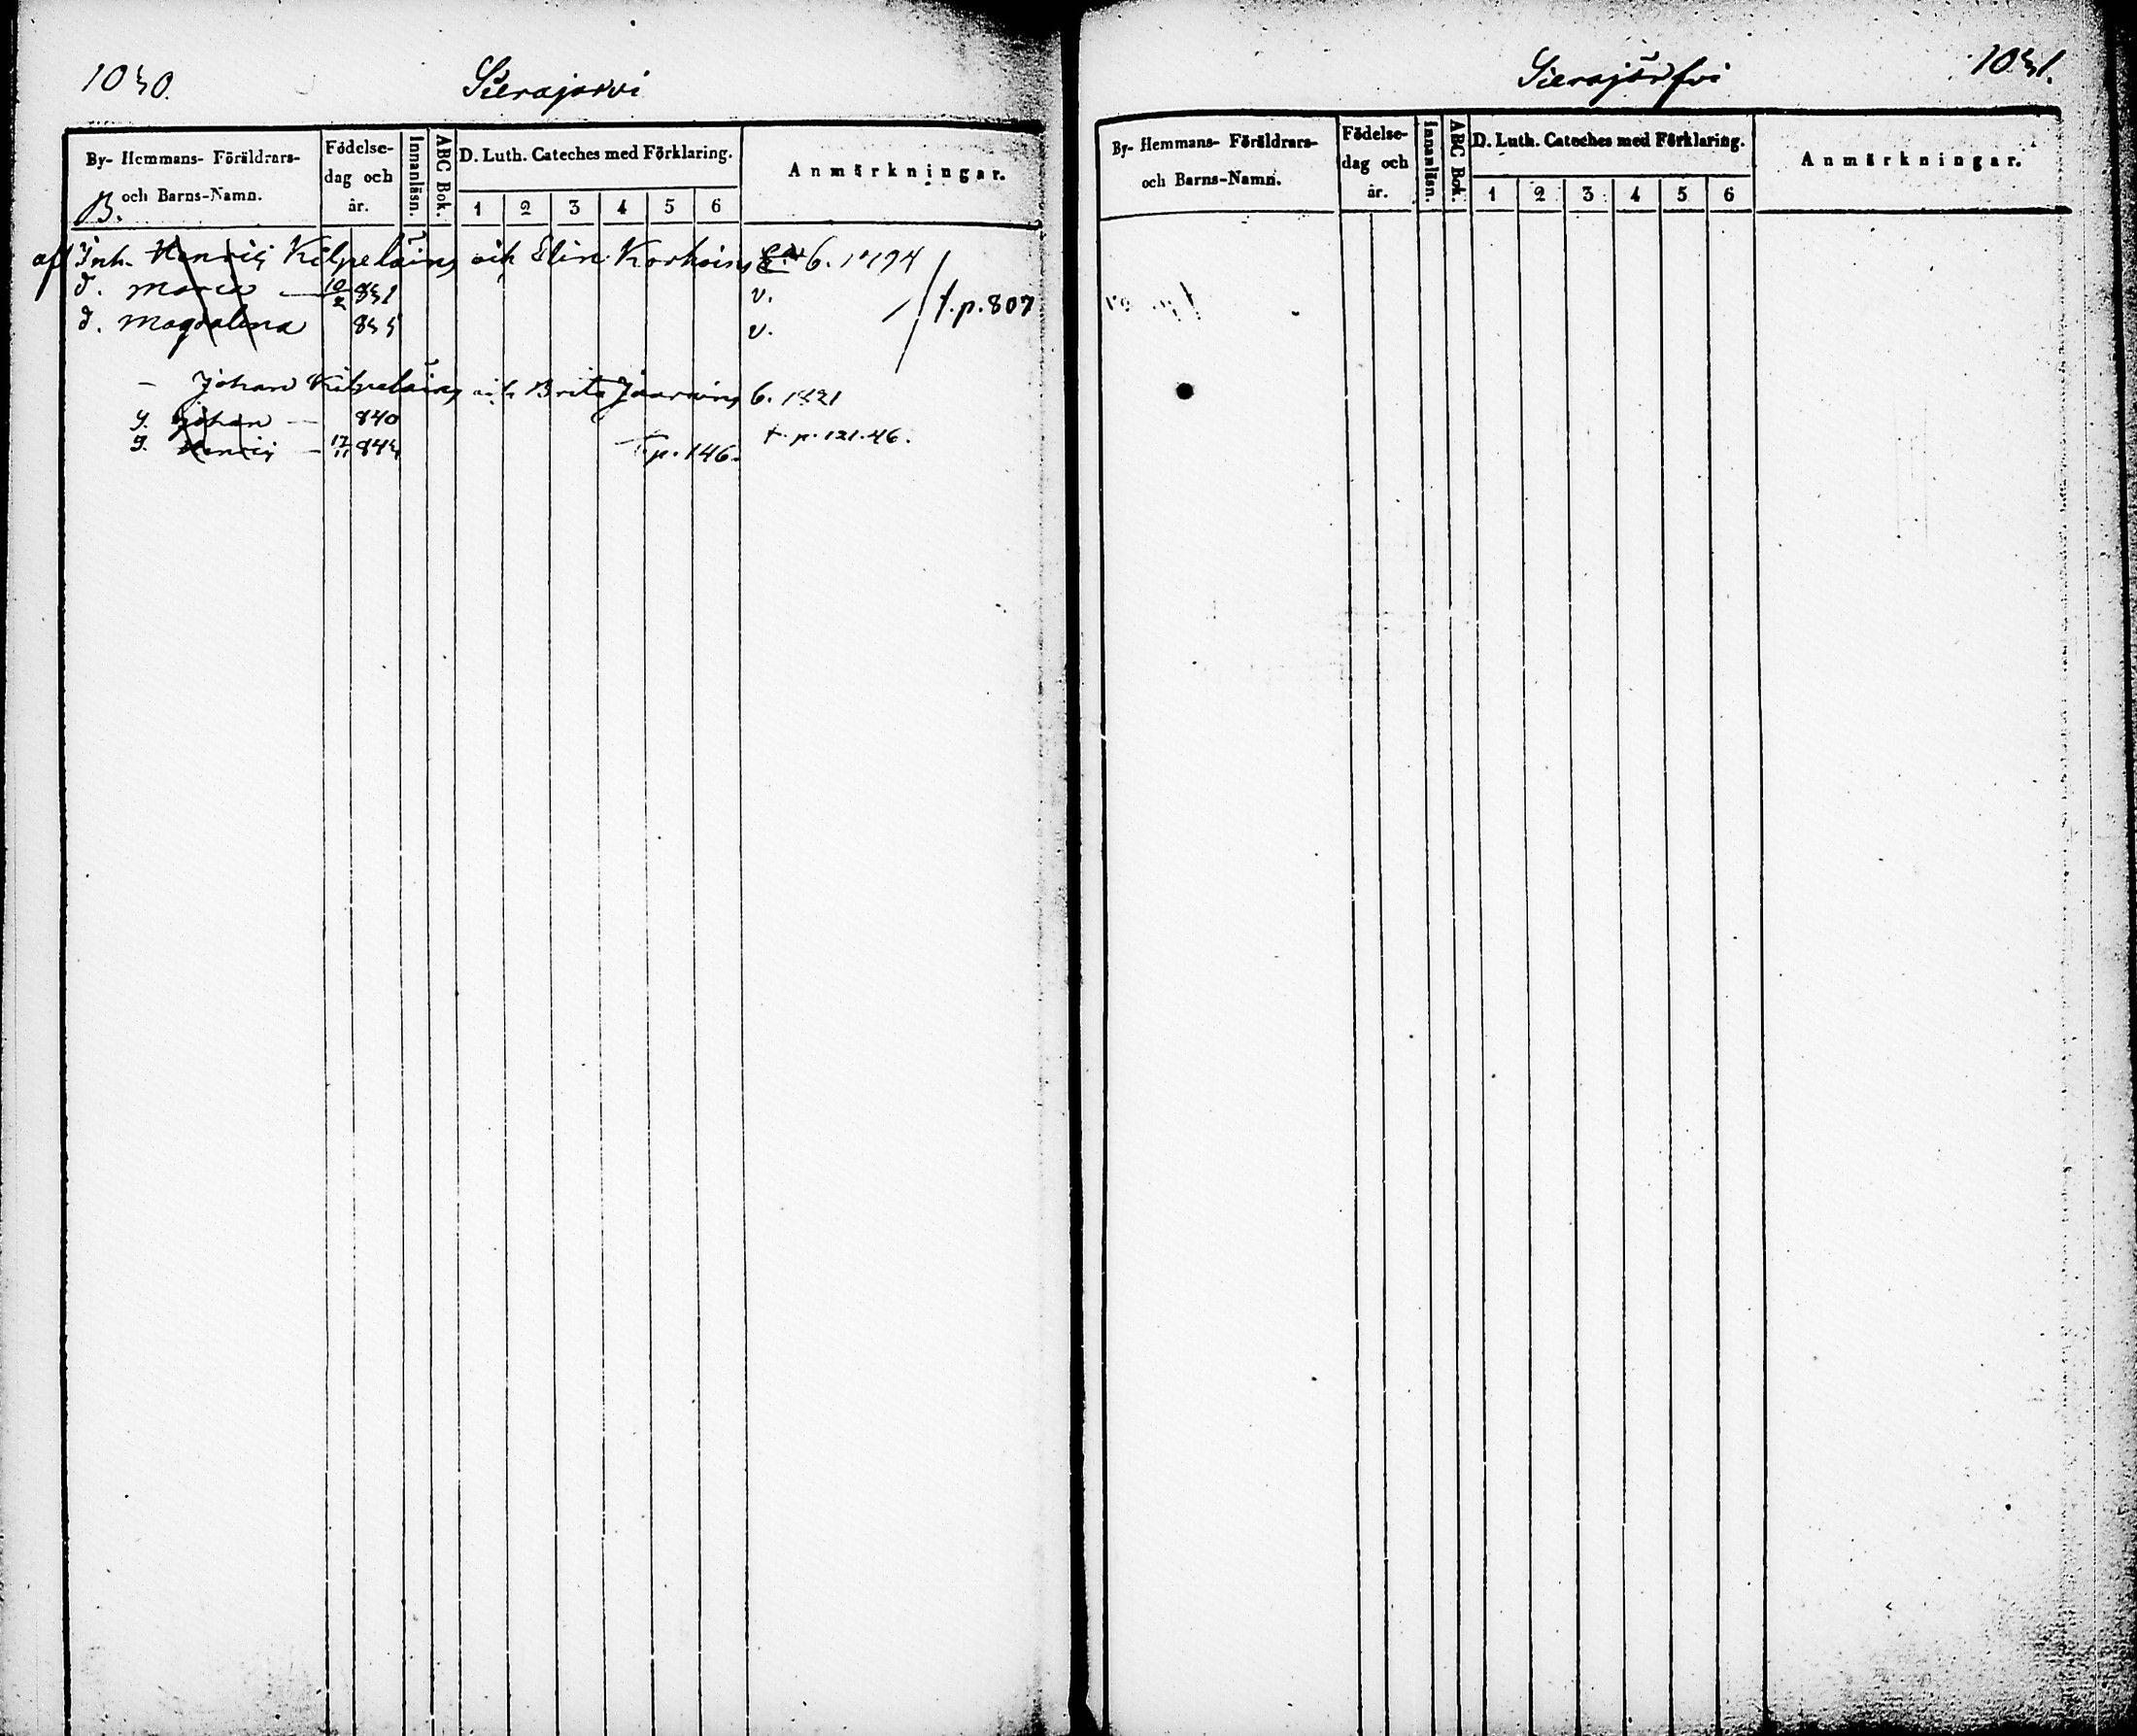 1050. Sierajärvi
By- Hemmans- Föräldrars- och Barns-Namn.
Födelse- dag och år.
Innanläsn.
ABC Bok.
D. Luth. Cateches med Förklaring.
1 2 3 4 5 6
Anmärkningar.
B.
af Inh. Henric Kilpeläing och Elin Korhoin 6. 1794
d. Maria 10/2 851 v.
d. Magdalena 855 v.
t.p. 807
- Johan Kilpeläing och Brita Jaarving 6. 1821
g. Johan — 840
t. p. 121.46.
g. Henric — 17/11 845 T.p. 146.
Sierajärfvi 1051.
By- Hemmans- Föräldrars- och Barns-Namn.
Födelse- dag och år.
Innanläsn.
ABC Bok.
D. Luth. Cateches med Förklaring.
1 2 3 4 5 6
Anmärkningar.